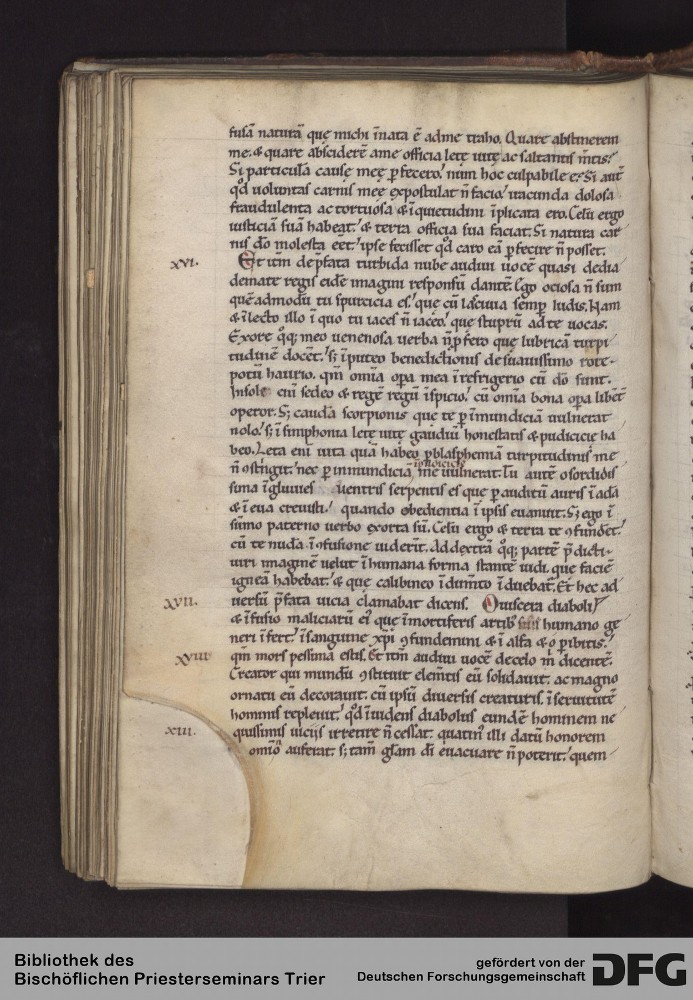 fusā naturā quę michi īnata ē adme traho. Quare abstinerem
me. & quare absciderē ame officia letę uitę ac saltantis m̄tis?
Si particulā causę meę ꝑfecero? num hoc culpabile e? Si aut̄
qd̄ uoluntas carnis meę expostulat n̄ facio? iracunda dolosa
fraudulenta ac tortuosa & īquietudini īplicata ero. Celū ergo
iusticiā suā habeat. & terra officia sua faciat. Si natura car
nis dō molesta eet. ipse fecisset qd̄ caro eā ꝑficere n̄ posset.
xvi. Et itm̄ dep̄fata turbida nube audiui uocē quasi dedia
demate regis eidē imagini responsū dantē. Ego ociosa n̄ sum
quēadmodū tu spurcicia es. que cū lasciuia semꝑ ludis. Nam
& īlecto illo ī quo tu iaces n̄ iaceo. que stuprū ad te uocas.
Ex ore qq; meo uenenosa uerba n̄ ꝓfero que lubricā turpi
tudinē docent. s; īputeo benedictionis desuauissimo rore
potū haurio. qm̄ omīa opa mea īrefrigerio cū dō sunt.
Insole eni sedeo & regē regū īspicio. cū omīa bona opa libēt̄
operor. S; caudā scorpionis que te ꝑ īmundiciā uulnerat
nolo. s; ī simphonia letę uitę gaudiū honestatis & pudicicię ha
beo. Leta eni uita quā habeo ꝑ blasphemiā turpitudinis me
n̄ ꝯstrigit. nec ꝑ inmundiciā me uulnerat. Tu autē o sordidis
sima īgluuies uentris serpentis es que ꝑ auditū auris ī adā
& ī eua creuisti. quando obedientia ī ipsis euanuit. S; ego ī
sūmo paterno uerbo exorta sū. Celū ergo & terra te ꝯfundēt.
cū te nudā ī ꝯfusione uiderīt. Ad dextrā qq; partē p̄dicti
uiri imaginē uelut ī humana forma stantē uidi. que faciē
igneā habebat. & que calibineo īdum̄to īduebat. Et hec ad
xvii. uersū p̄fata uicia clamabat dicens. O uiscera diaboli
& īfusio maliciarū ei que īmortiferis artib humano ge
neri īfert. ī sanguine xpi ꝯfundemini & ī alfa & o ꝑibitis.
xviii qm̄ mors pessima estis. Et itm̄ audiui uocē decelo m̄ dicentē.
Creator qui mundū ꝯstituit elem̄tis eū solidauit. ac magno
ornatu eū decorauit. cū ipsū diuersis creaturis. ī seruitutē
hominis repleuit. qd̄ īuidens diabolus eundē hominem ne
xiii. quissimis uicijs irretire n̄ cessat. quatin illi datū honorem
omīo auferat. s; tam̄ glam dī euacuare n̄ poterit. quem
Bibliothek des
Bischöflichen Priesterseminars Trier
gefördert von der
Deutschen Forschungsgemeinschaft
DFG